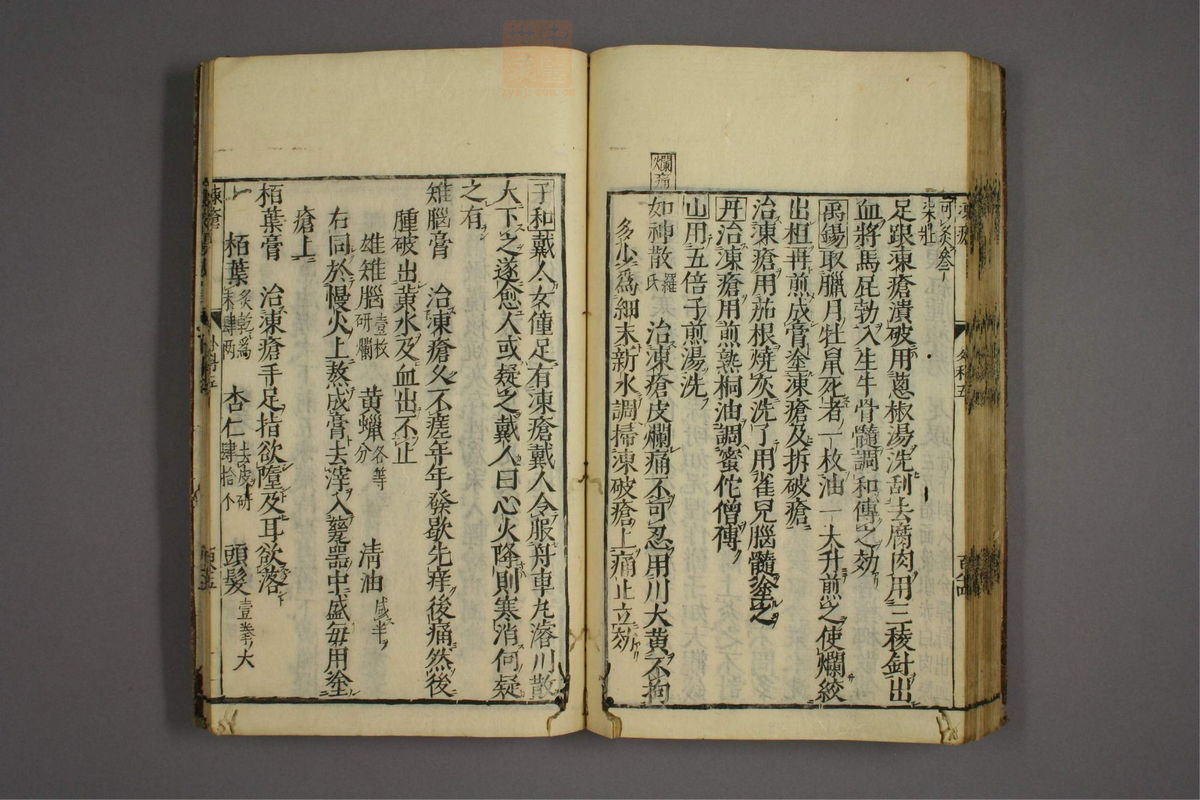 爛痛
足跟凍瘡潰破用蔥椒湯洗刮去腐肉用三稜針出
血將馬屁勃入生牛骨髓調和傅之効
禹錫取臘月牡鼠死者一枚油一大升煎之使爛絞
出柤再煎成膏塗凍瘡及拆破瘡
治凍瘡用茄根燒灰洗了用雀兒腦髓塗之
丹治凍瘡用煎熟桐油調蜜佗僧傅
山用五倍子煎湯洗
如神散羅氏 治凍瘡皮爛痛不可忍用川大黃不拘
多少爲細末新水調掃凍破瘡上痛止立効
子和戴人女僮足有凍瘡戴人令服舟車丸濬川散
大下之遂愈人或疑之戴人曰心火降則寒消何疑
之有
雉腦膏 治凍瘡久不瘥年年發歇先痒後痛然後
腫破出黃水及血出不止
雄雉腦壹枚研爛 黃蠟各等分 淸油減半
右同於慢火上熬成膏去滓入甆器中盛每用塗
瘡上
栢葉膏 治凍瘡手足指欲墮及耳欲落
栢葉炙乾爲末肆兩 杏仁去皮研肆拾个 頭髮壹拳大